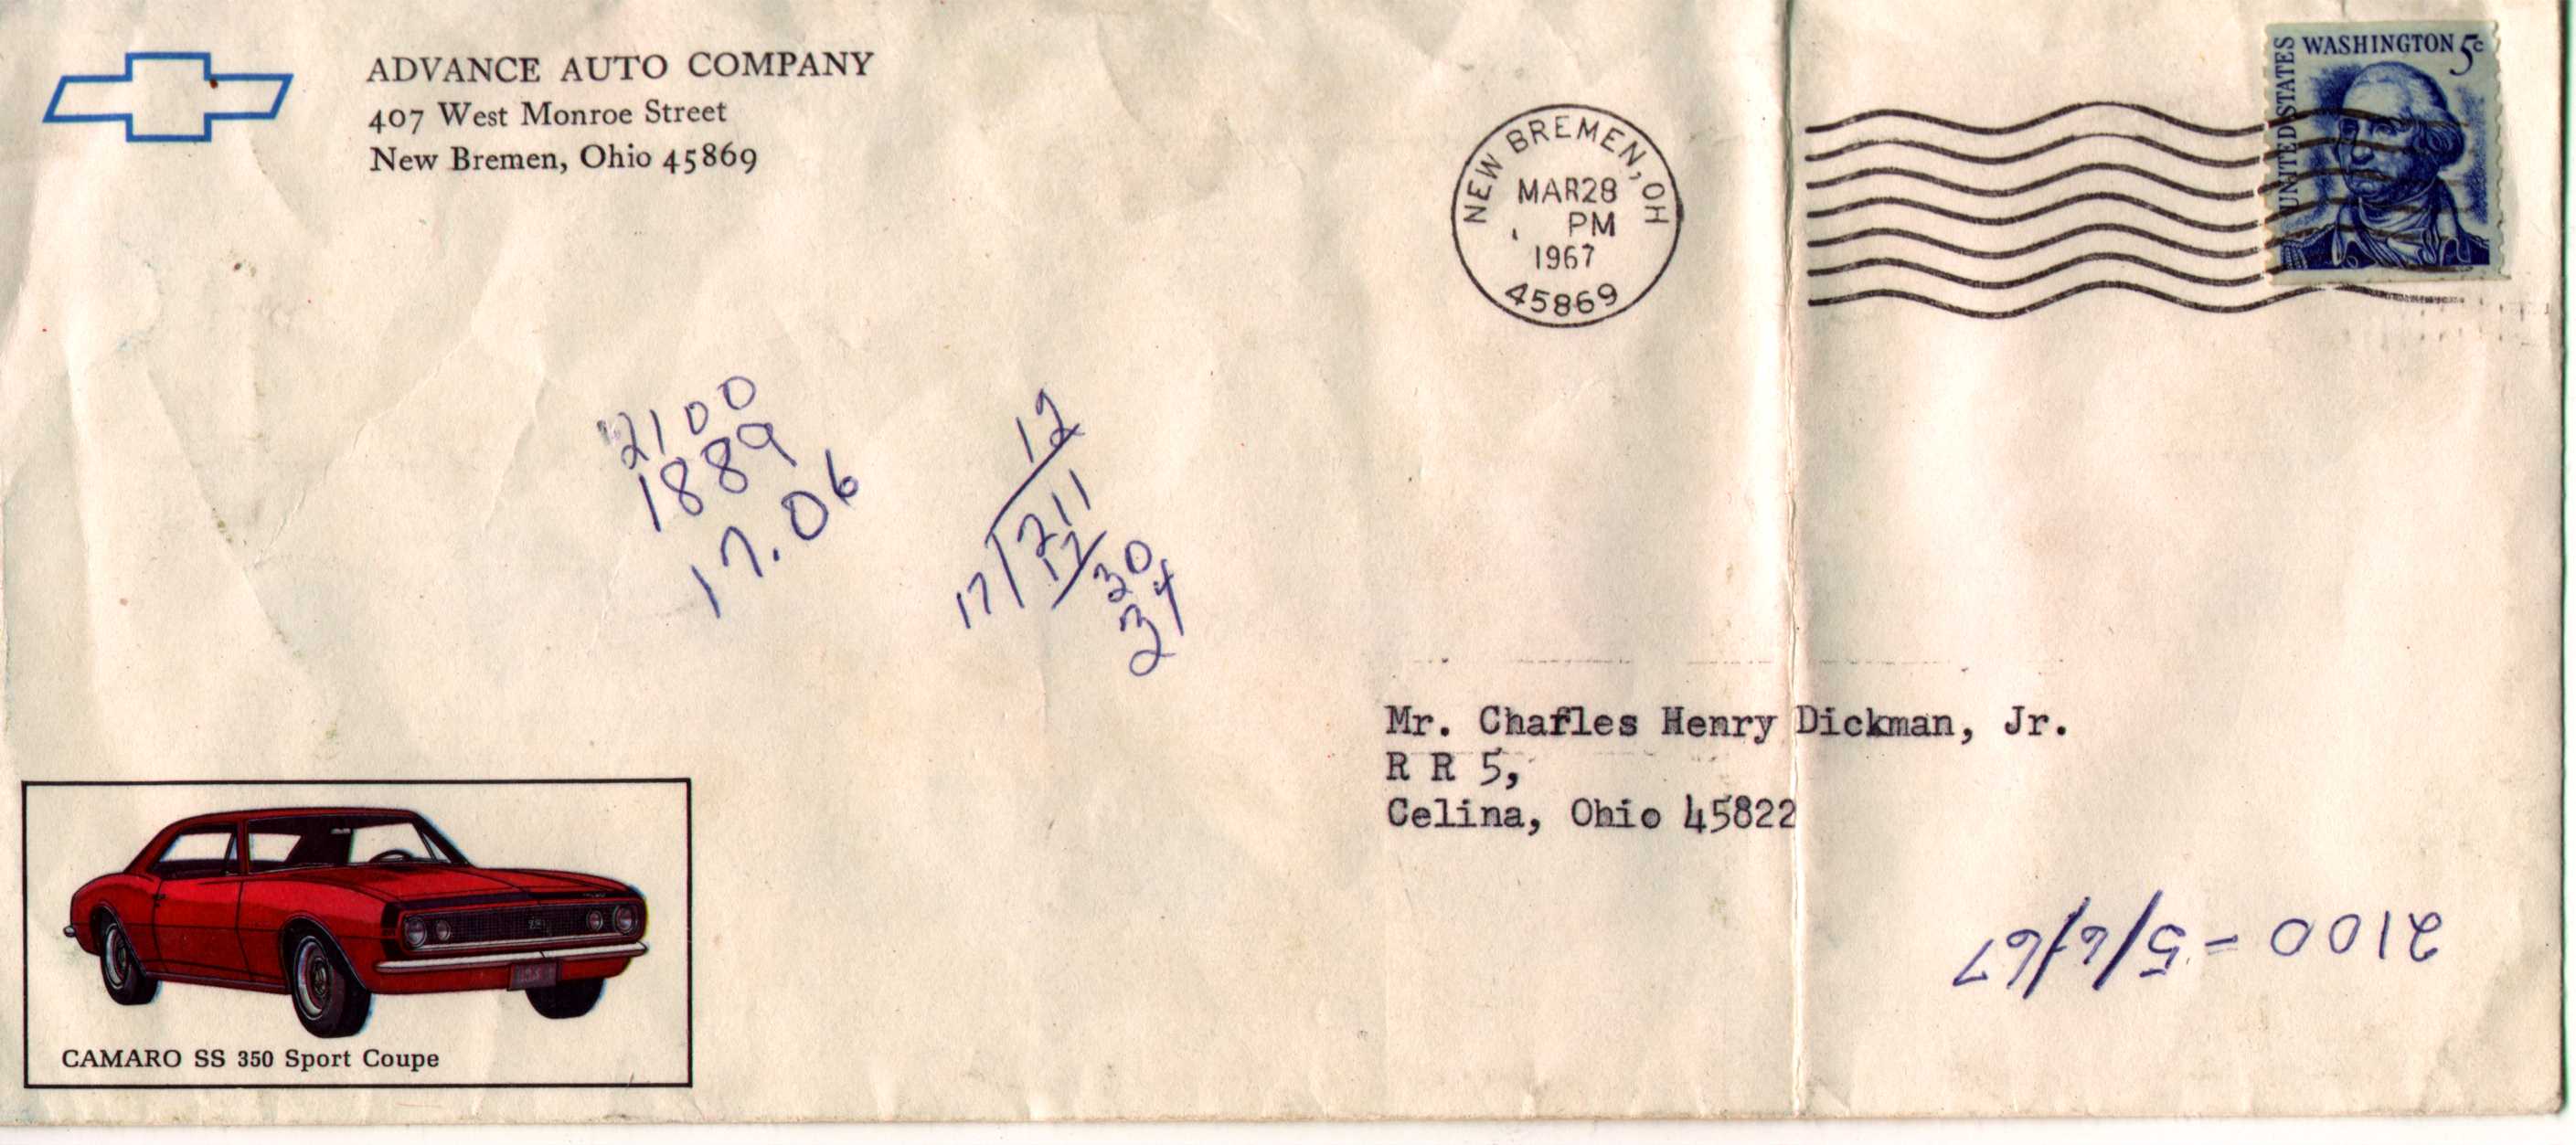 ADVANCE AUTO COMPANY
407 West Monroe Street
New Bremen, Ohio 45869
NEW BREMEN, OH
MAR 28
PM
1967
45869
UNITED STATES
WASHINGTON 5c
2100
1889
17.06
12
17/211
17
30
34
Mr. Chafles Henry Dickman, Jr.
R R 5,
Celina, Ohio 45822
2100 - 5/6/67
CAMARO SS 350 Sport Coupe